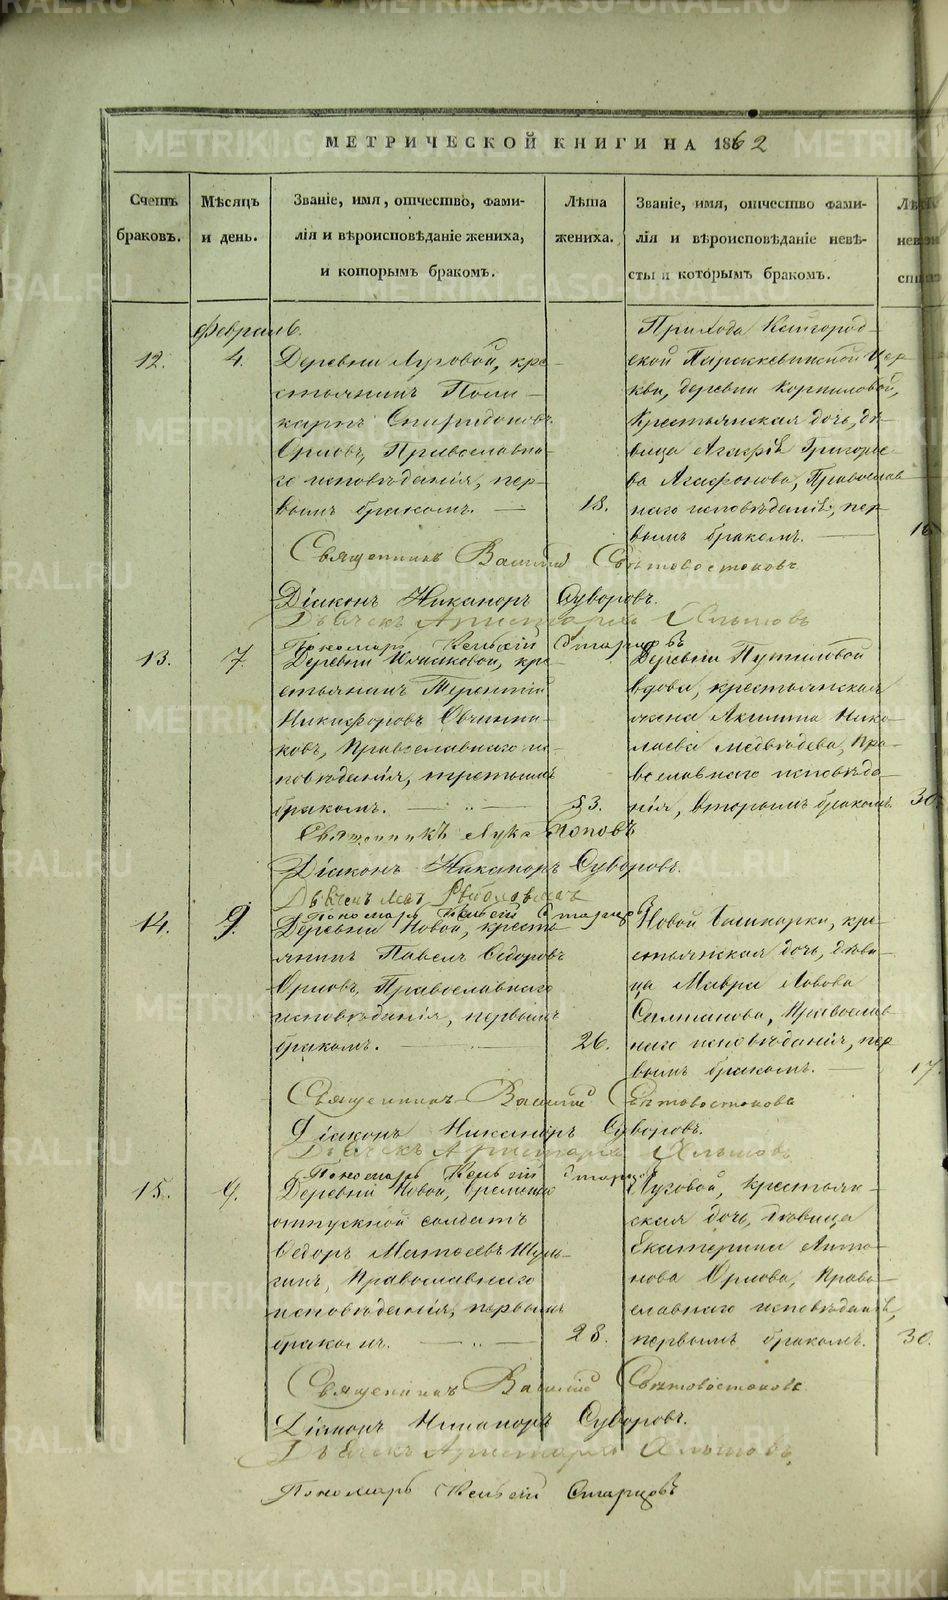 МЕТРИЧЕСКОЙ КНИГИ НА 1862
Счетъ браковъ.
Мѣсяцъ и день.
Званіе, имя, отчество, фами-
лія и вѣроисповѣданіе жениха,
и которымъ бракомъ.
Лѣта жениха.
Званіе, имя, отчество фами-
лія и вѣроисповѣданіе невѣ-
сты и которымъ бракомъ.
Февраль.
12.
4.
Деревни Луговой, кре-
стьянинъ Поли-
карпъ Спиридоновъ
Орловъ, Православна-
го исповѣданія, пер-
вымъ бракомъ.
18.
Прихода Кайгород-
ской Параскевинской Цер-
кви, деревни Корниловой,
Крестьянская дочь, дѣ-
вица Агафія Григорье-
ва Агафонова, Православ-
наго исповѣданія, пер-
вымъ бракомъ.
Священникъ Василій Свѣтовостоковъ
Діаконъ Никаноръ Суворовъ.
Дьячекъ
Пономарь Старцовъ
13.
7.
Деревни кре-
стьянинъ Терентій
Никифоровъ Овчинни-
ковъ, Православнаго ис-
повѣданія, третьимъ
бракомъ.
53.
Деревни Путиловой
вдова, крестьянская
жена Акилина Нико-
лаева Медвѣдева, Пра-
вославнаго исповѣда-
нія, вторымъ бракомъ
30.
Священникъ Лука Поповъ
Діаконъ Никаноръ Суворовъ.
Дьячекъ
Пономарь Старцовъ
14.
9.
Деревни Новой, кресть-
янинъ Павелъ Ѳедоровъ
Орловъ, Православнаго
исповѣданія, первымъ
бракомъ.
26.
Новой кре-
стьянская дочь, дѣви-
ца Мавра Львова
Салтанова, Православ-
наго исповѣданія, пер-
вымъ бракомъ.
17.
Священникъ Василій Свѣтовостоковъ
Діаконъ Никаноръ Суворовъ.
Дьячекъ
Пономарь Старцовъ
15.
9.
Деревни Новой, временно
отпускной солдатъ
Ѳедоръ Матѳеевъ Шуль-
гинъ, Православнаго
исповѣданія, первымъ
бракомъ.
28.
Луговой, Крестьян-
ская дочь, дѣвица
Екатерина Анто-
нова Орлова, Право-
славнаго исповѣданія,
первымъ бракомъ.
30.
Священникъ Василій Свѣтовостоковъ.
Діаконъ Никаноръ Суворовъ.
Дьячекъ
Пономарь Старцовъ
METRIKI.GASO-URAL.RU